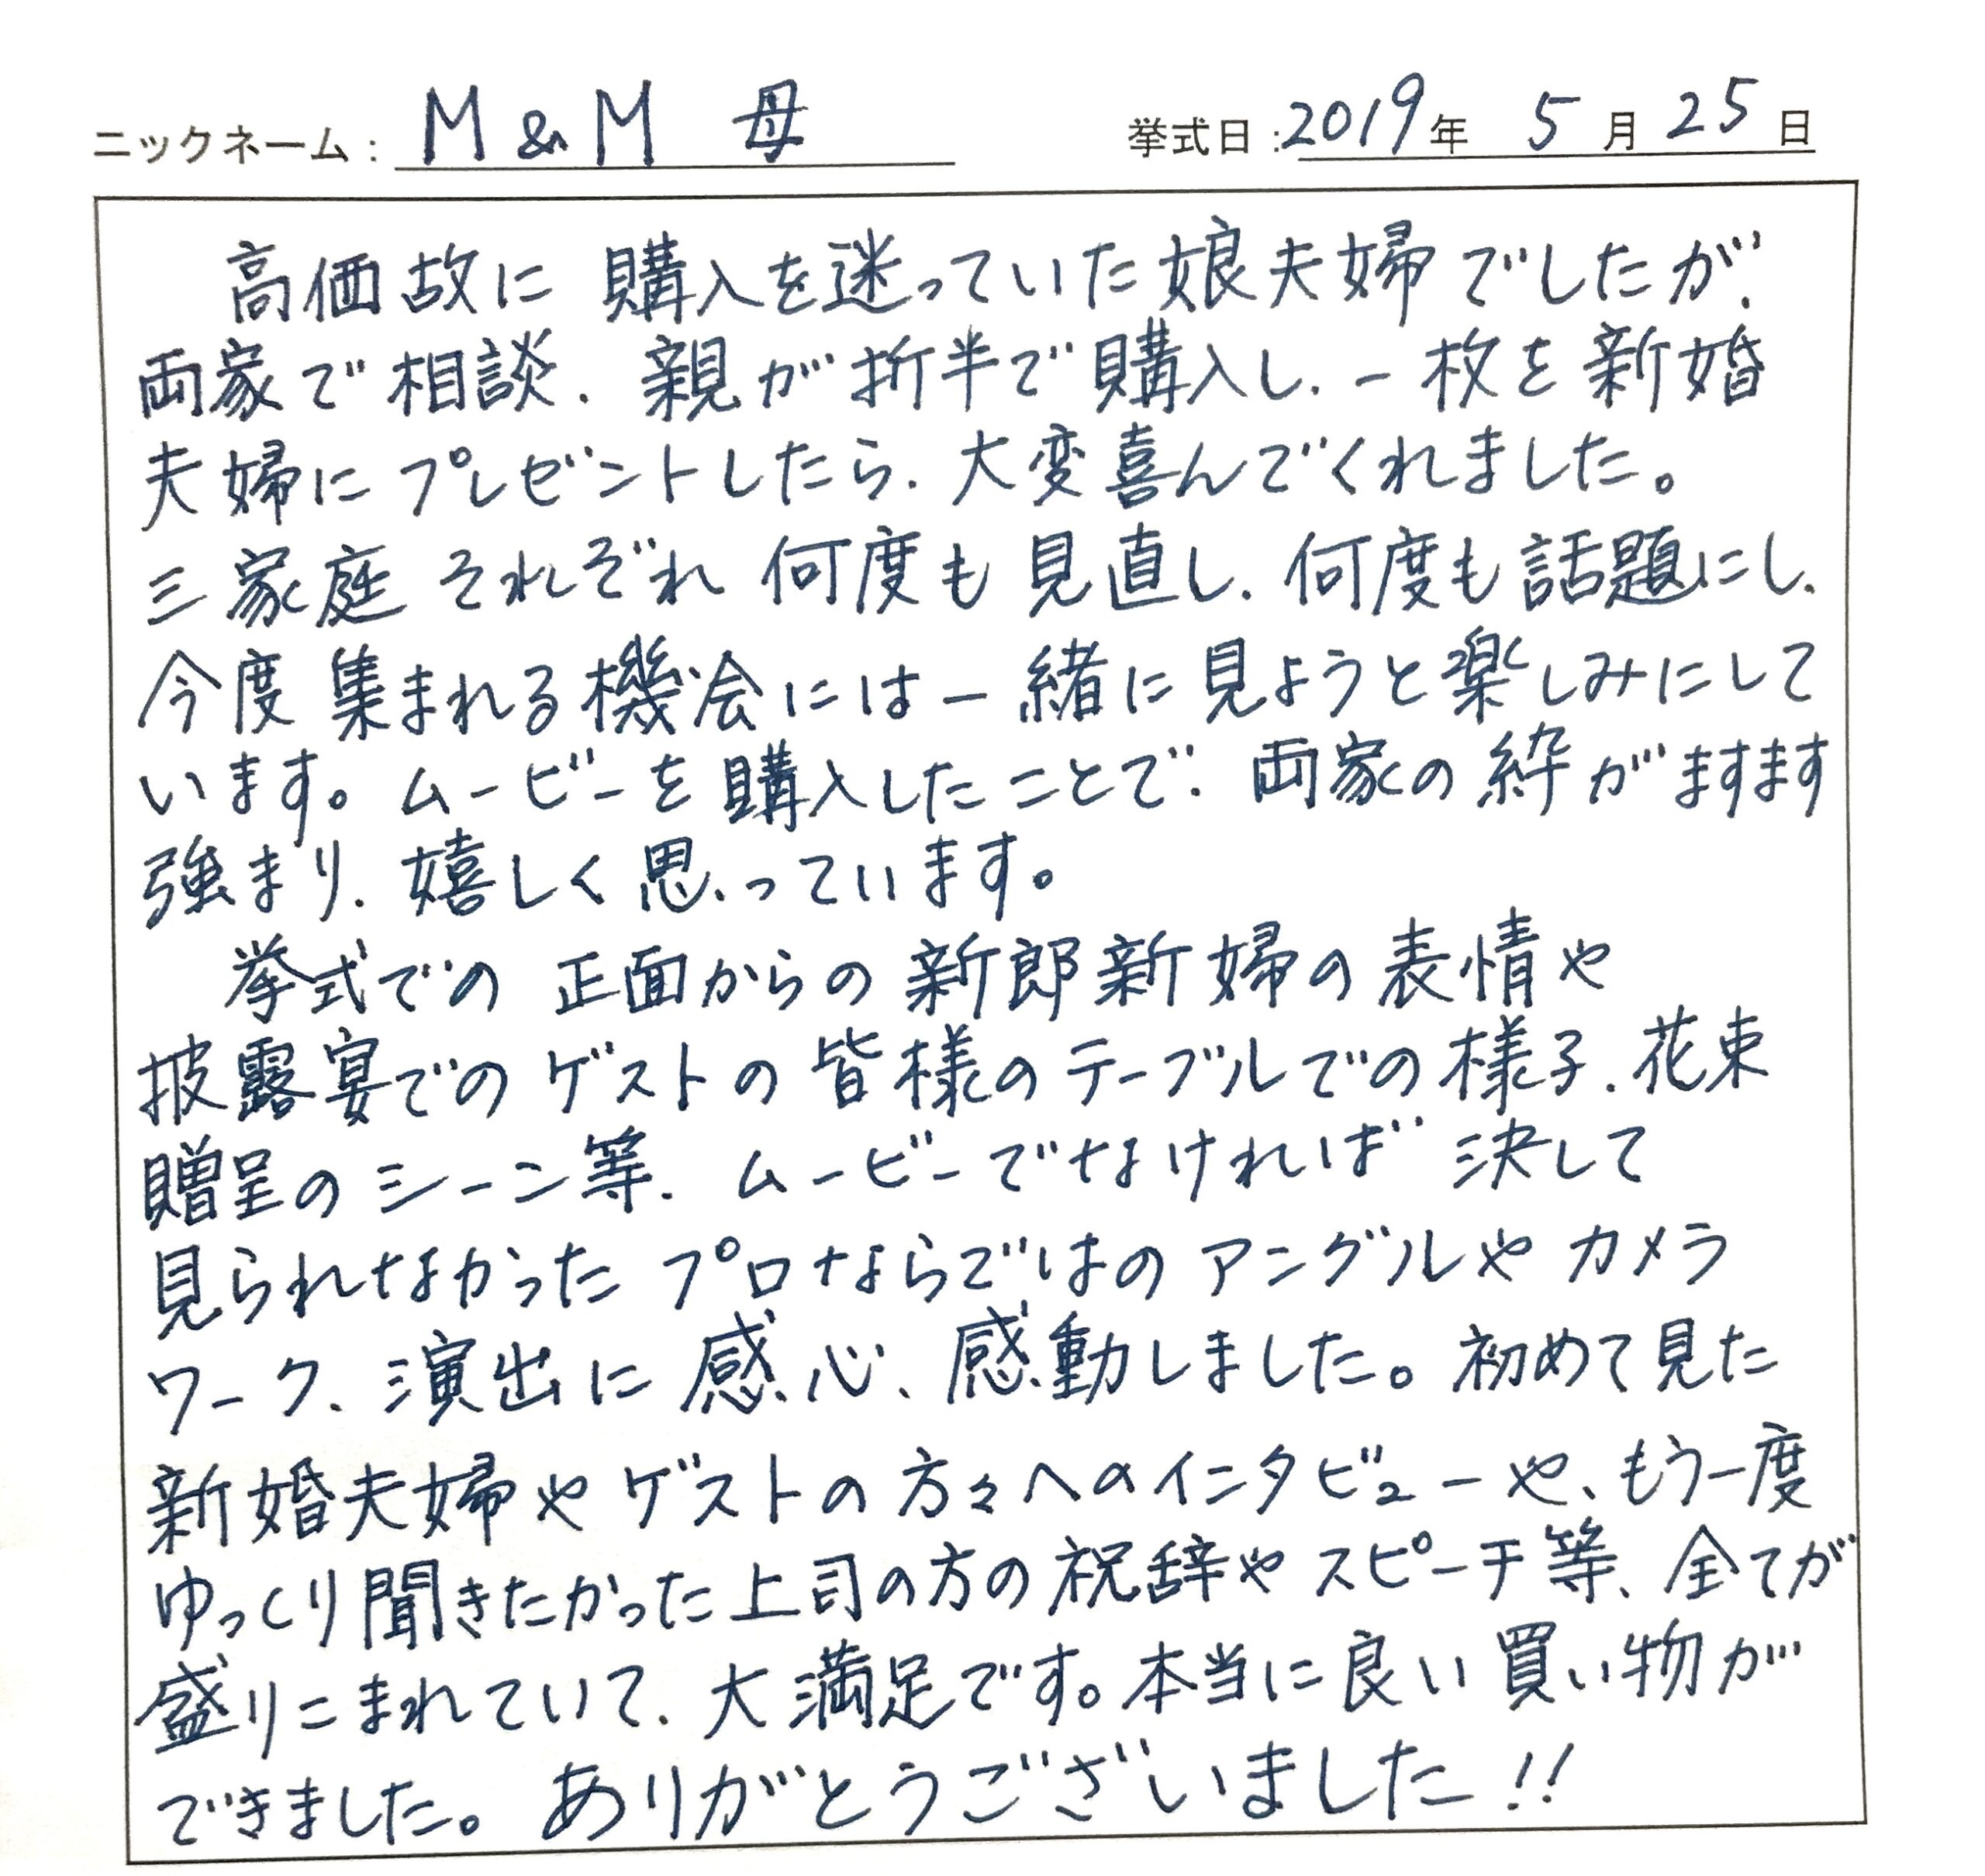 ニックネーム： M&M 母 挙式日：2019年 5月25日
高価故に 購入を迷っていた娘夫婦でしたが、
両家で相談、親が折半で購入し、一枚を新婚
夫婦に プレゼントしたら、大変喜んでくれました。
三家庭 それぞれ 何度も見直し、何度も話題にし、
今度集まれる機会には一緒に見ようと楽しみにして
います。ムービーを購入したことで、両家の絆がますます
強まり、嬉しく思っています。
挙式での 正面からの新郎新婦の表情や
披露宴での ゲストの皆様のテーブルでの様子、花束
贈呈のシーン等、ムービーでなければ 決して
見られなかった プロならではの アングルや カメラ
ワーク、演出に 感心、感動しました。初めて見た
新婚夫婦や ゲストの方々へのインタビューや、もう一度
ゆっくり聞きたかった上司の方の祝辞やスピーチ等、全てが
盛りこまれていて、大満足です。本当に良い買い物が
できました。ありがとうございました!!